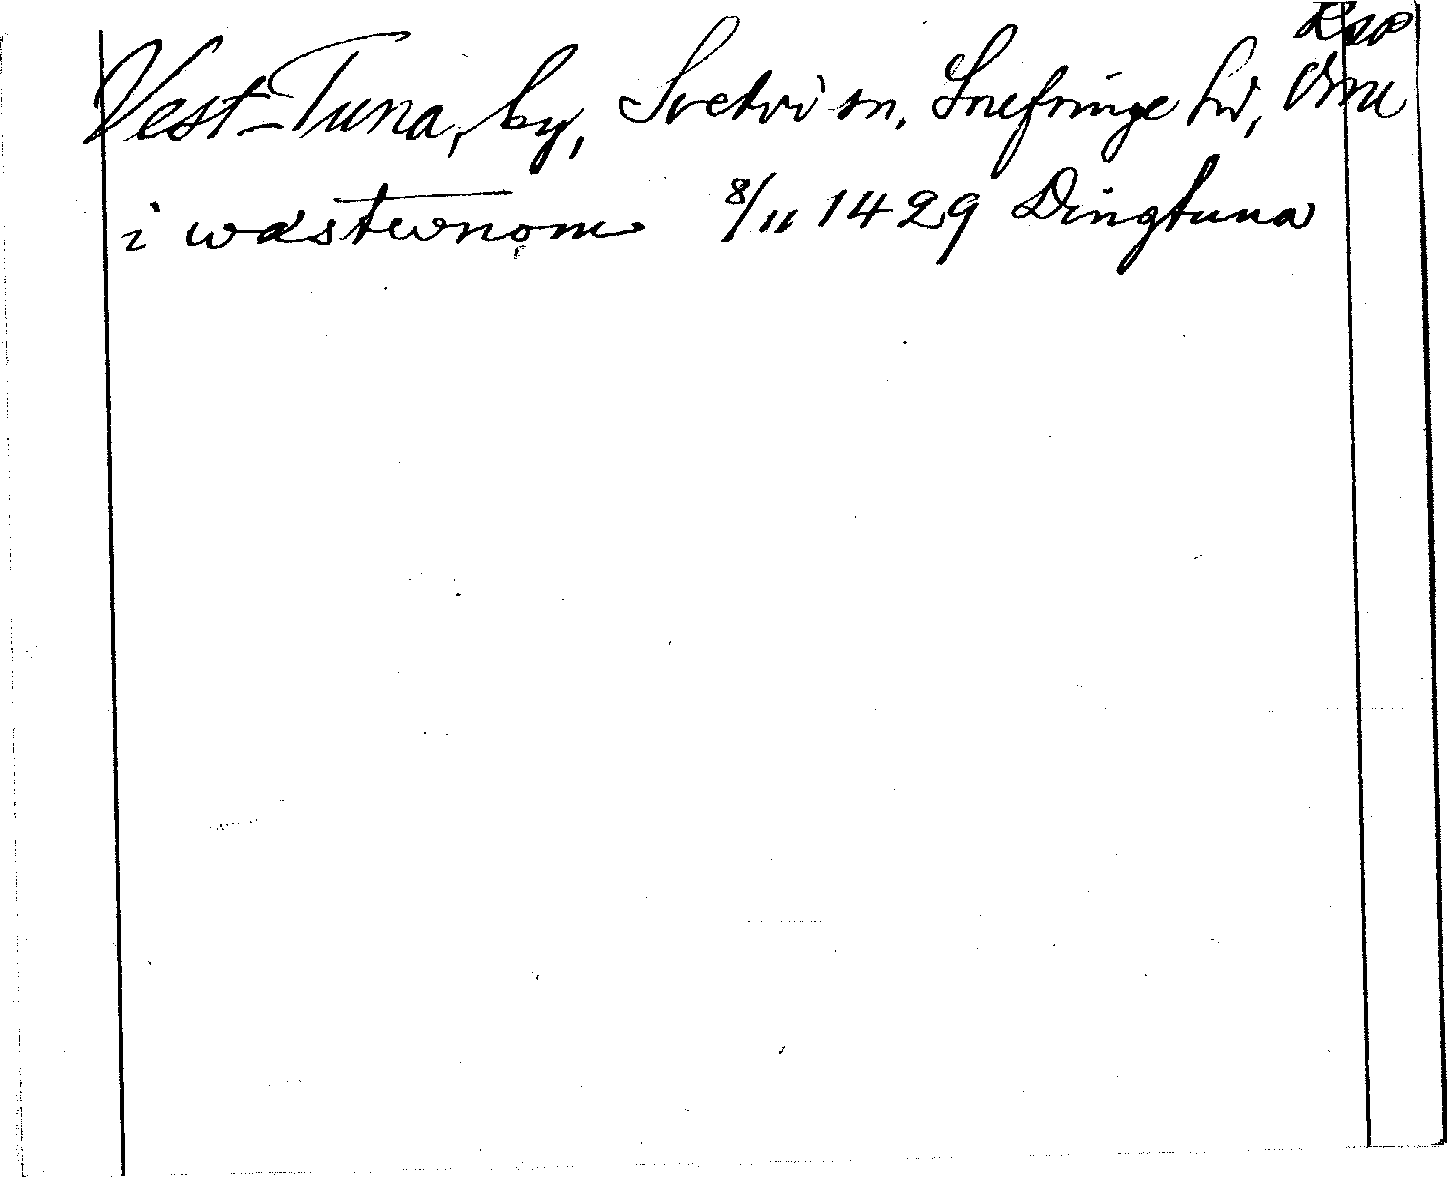 Rap
Vest-Tuna, by, Svetvi sn, Snefringe hd, Vml
i wæsternom 8/11 1429 Dingtuna